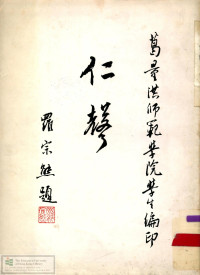 葛量洪師範學院學生編印
仁聲
羅宗熊題